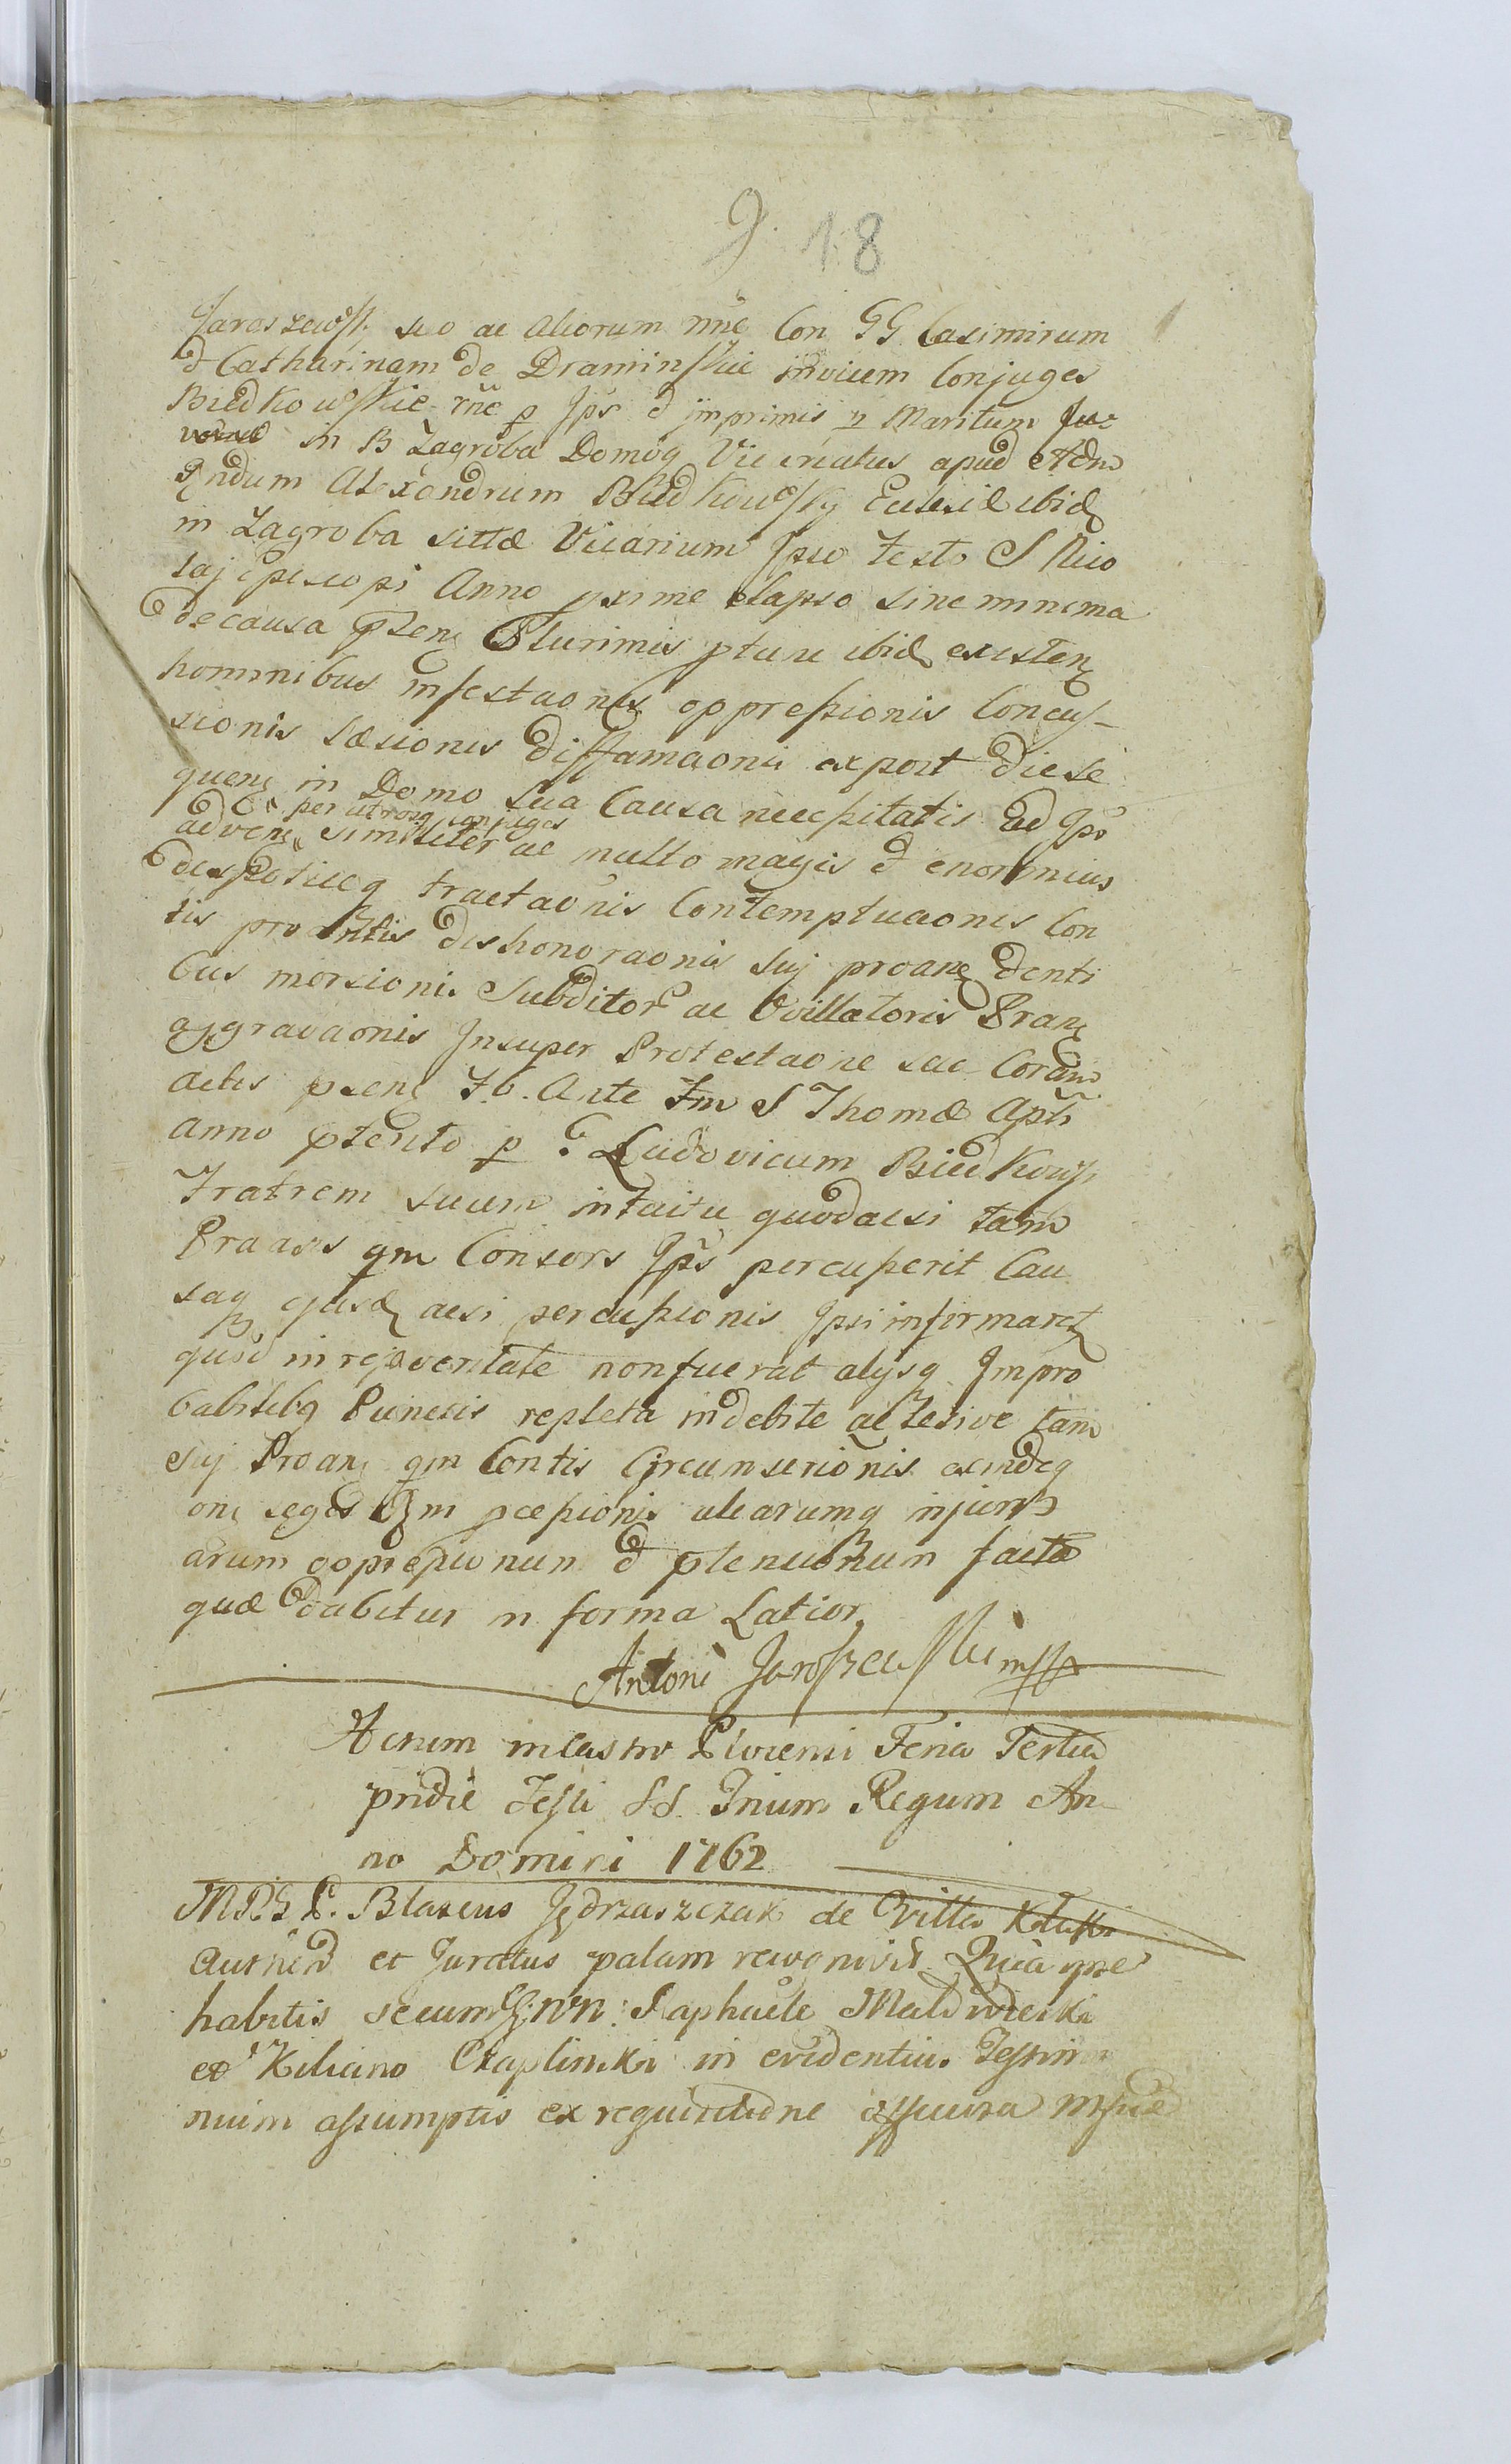 9. 18
Jaroszewsk. suo ac aliorum nne Con GG Casimirum
et Catharinam de Draminskie invicem Conjuges
Biedkowskie rne p Ips et imprimis p Maritum
in B Zagroba Domoq Vicariatus apud Adm
Rndum Alexandrum Biedkowsky Ecclesiae ibid
in Zagroba sittae Vicarium Ipso Festo S Nico
laj Episcopi Anno pxime elapso sine minima
de causa psen Plurimis ptunc ibid existen
hominibus infestaonis oppressionis Concus-
sionis Laesionis Diffamaonis ac post die se
quen in Domo sua Causa necessitatis ad Ips
per utrosq conjuges
adven similiter ac multo magis et enormius
despoticeq tractaonis Contemptuaonis Con
tis proantis dishonoraonis suj proane denti
bus morsionis Subditor ac Ovillatoris Pran
aggravaonis Insuper Protestaone sae Coram
actis psen F. 6. Ante Fm S Thomae Aptli
Anno ptento p G Ludovicum Biedkowsk
Fratrem suum intuitu quod acsi tam
Praans qm Consors Ips percusserit Cau
saq ejusd acsi percussionis Ipsi informaret
quod in rej veritate non fuerat alijsq Impro
babilibq Punctis repleta indebite ac lesive tam
suj Proan qm Contis Circumscrionis exindeq
on legis Rgm pcessionis aliarumq injuri
arum oppressionum et ptensionum facta
quae dabitur in forma Latior
Antoni Jaroszewski mpp
Actum in Castro Plocensi Feria Tertia
pridie Festi SS. Trium Regum An
no Domini 1762
Blaseus Jędrzaszczak de Villa
Authend et Juratus palam recognovit Quia ipse
habitis secum GG. nrn: Raphaele Malowieski
et Kiliano Czaplinski in evidentius Testimo
nium assumptis ex requisitione